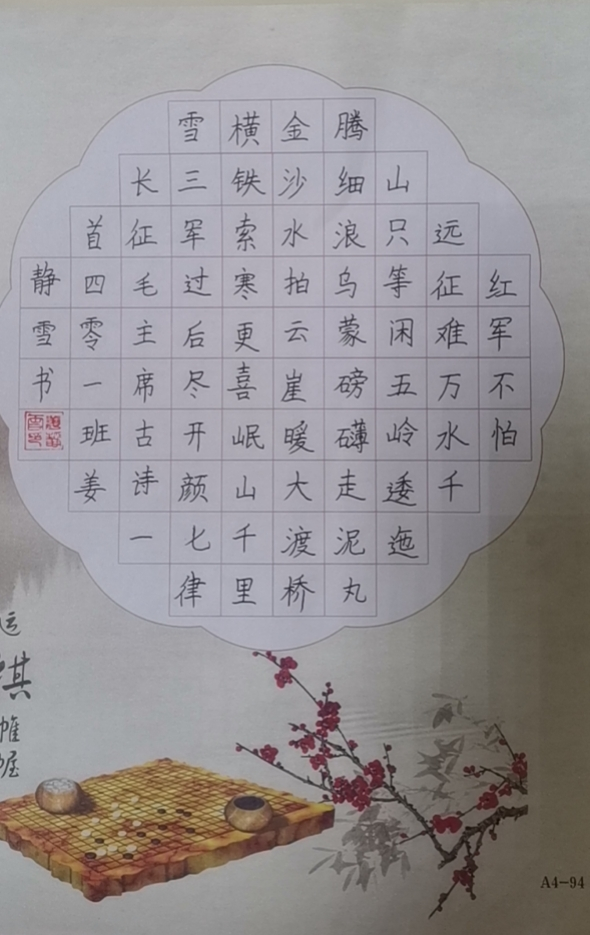 红军不怕
远征难万水千
山只等闲五岭逶迤
腾细浪乌蒙磅礴走泥丸
金沙水拍云崖暖大渡桥
横铁索寒更喜岷山千里
雪三军过后尽开颜七律
长征毛主席古诗一
首四零一班姜
静雪书
A4-94